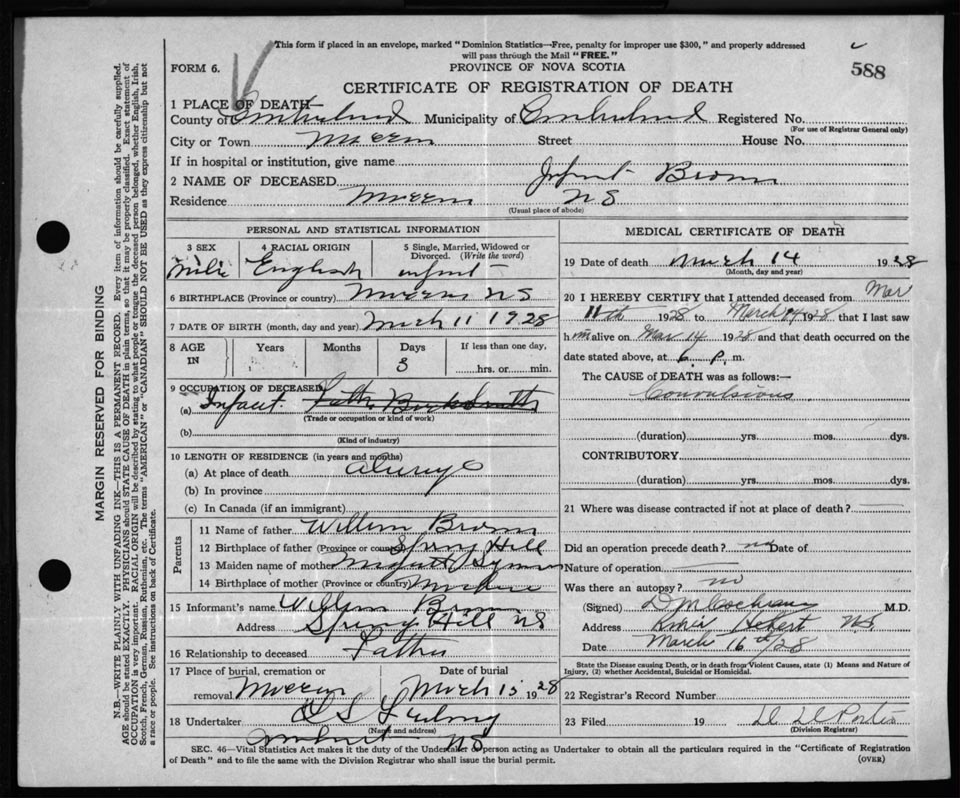 This form if placed in an envelope, marked "Dominion Statistics—Free, penalty for improper use $300," and properly addressed
will pass through the Mail "FREE."
588
FORM 6.
PROVINCE OF NOVA SCOTIA
CERTIFICATE OF REGISTRATION OF DEATH
1 PLACE OF DEATH—
County of Cumberland Municipality of Cumberland Registered No.
(For use of Registrar General only)
City or Town Street House No.
If in hospital or institution, give name
2 NAME OF DECEASED Infant Brown
Residence NS
(Usual place of abode)
PERSONAL AND STATISTICAL INFORMATION
3 SEX 4 RACIAL ORIGIN 5 Single, Married, Widowed or Divorced. (Write the word)
Male English infant
6 BIRTHPLACE (Province or country) NS
7 DATE OF BIRTH (month, day and year) March 11 1928
8 AGE IN Years Months Days If less than one day,
3 hrs. or min.
9 OCCUPATION OF DECEASED
(a) Infant.
(Trade or occupation or kind of work)
(b)
(Kind of industry)
10 LENGTH OF RESIDENCE (in years and months)
(a) At place of death always
(b) In province
(c) In Canada (if an immigrant)
Parents
11 Name of father William Brown
12 Birthplace of father (Province or country) Spring Hill
13 Maiden name of mother
14 Birthplace of mother (Province or country)
15 Informant's name William Brown
Address Spring Hill NS
16 Relationship to deceased Father
17 Place of burial, cremation or removal Date of burial
March 15 1928
18 Undertaker
(Name and address)
Amherst NS
MEDICAL CERTIFICATE OF DEATH
19 Date of death March 14 1928
(Month, day and year)
20 I HEREBY CERTIFY that I attended deceased from Mar
11th 1928 to March 14 1928 that I last saw
him alive on Mar 14 1928 and that death occurred on the
date stated above, at 6 P. m.
The CAUSE of DEATH was as follows:—
Convulsions
(duration) yrs. mos. dys.
CONTRIBUTORY
(duration) yrs. mos. dys.
21 Where was disease contracted if not at place of death?
Did an operation precede death? no Date of
Nature of operation
Was there an autopsy? no
(Signed) D M Cochrane M.D.
Address River Hebert NS
Date March 16th/28
State the Disease causing Death, or in death from Violent Causes, state (1) Means and Nature of
Injury, (2) whether Accidental, Suicidal or Homicidal.
22 Registrar's Record Number
23 Filed 19
(Division Registrar)
SEC. 46—Vital Statistics Act makes it the duty of the Undertaker or person acting as Undertaker to obtain all the particulars required in the "Certificate of Registration
of Death" and to file the same with the Division Registrar who shall issue the burial permit.
(OVER)
MARGIN RESERVED FOR BINDING
N.B.—WRITE PLAINLY WITH UNFADING INK—THIS IS A PERMANENT RECORD. Every item of information should be carefully supplied.
AGE should be stated EXACTLY. PHYSICIANS should STATE CAUSE OF DEATH in plain terms, so that it may be properly classified. Exact statement of
OCCUPATION is very important. RACIAL ORIGIN will be described by stating to what people or tongue the deceased person belonged, whether English, Irish,
Scotch, French, German, Russian, Ruthenian, etc. The terms "AMERICAN" or "CANADIAN" SHOULD NOT BE USED as they express citizenship but not
a race or people. See instructions on back of Certificate.